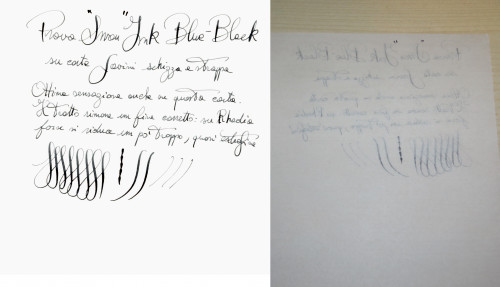 Prova "Iron" Ink Blue-Black
su carta Favini schizza e strappa
Ottima sensazione anche su questa carta.
Il tratto rimane un fine corretto: su Rhodia
forse si riduce un po' troppo, quasi extrafine